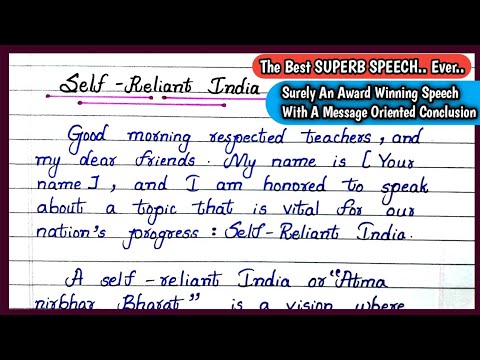 The Best SUPERB SPEECH.. Ever..
Surely An Award Winning Speech
With A Message Oriented Conclusion
Self-Reliant India
Good morning respected teachers, and
my dear friends. My name is [Your
name], and I am honored to speak
about a topic that is vital for our
nation's progress : Self-Reliant India.
A self-reliant India or "Atma
nirbhar Bharat" is a vision where